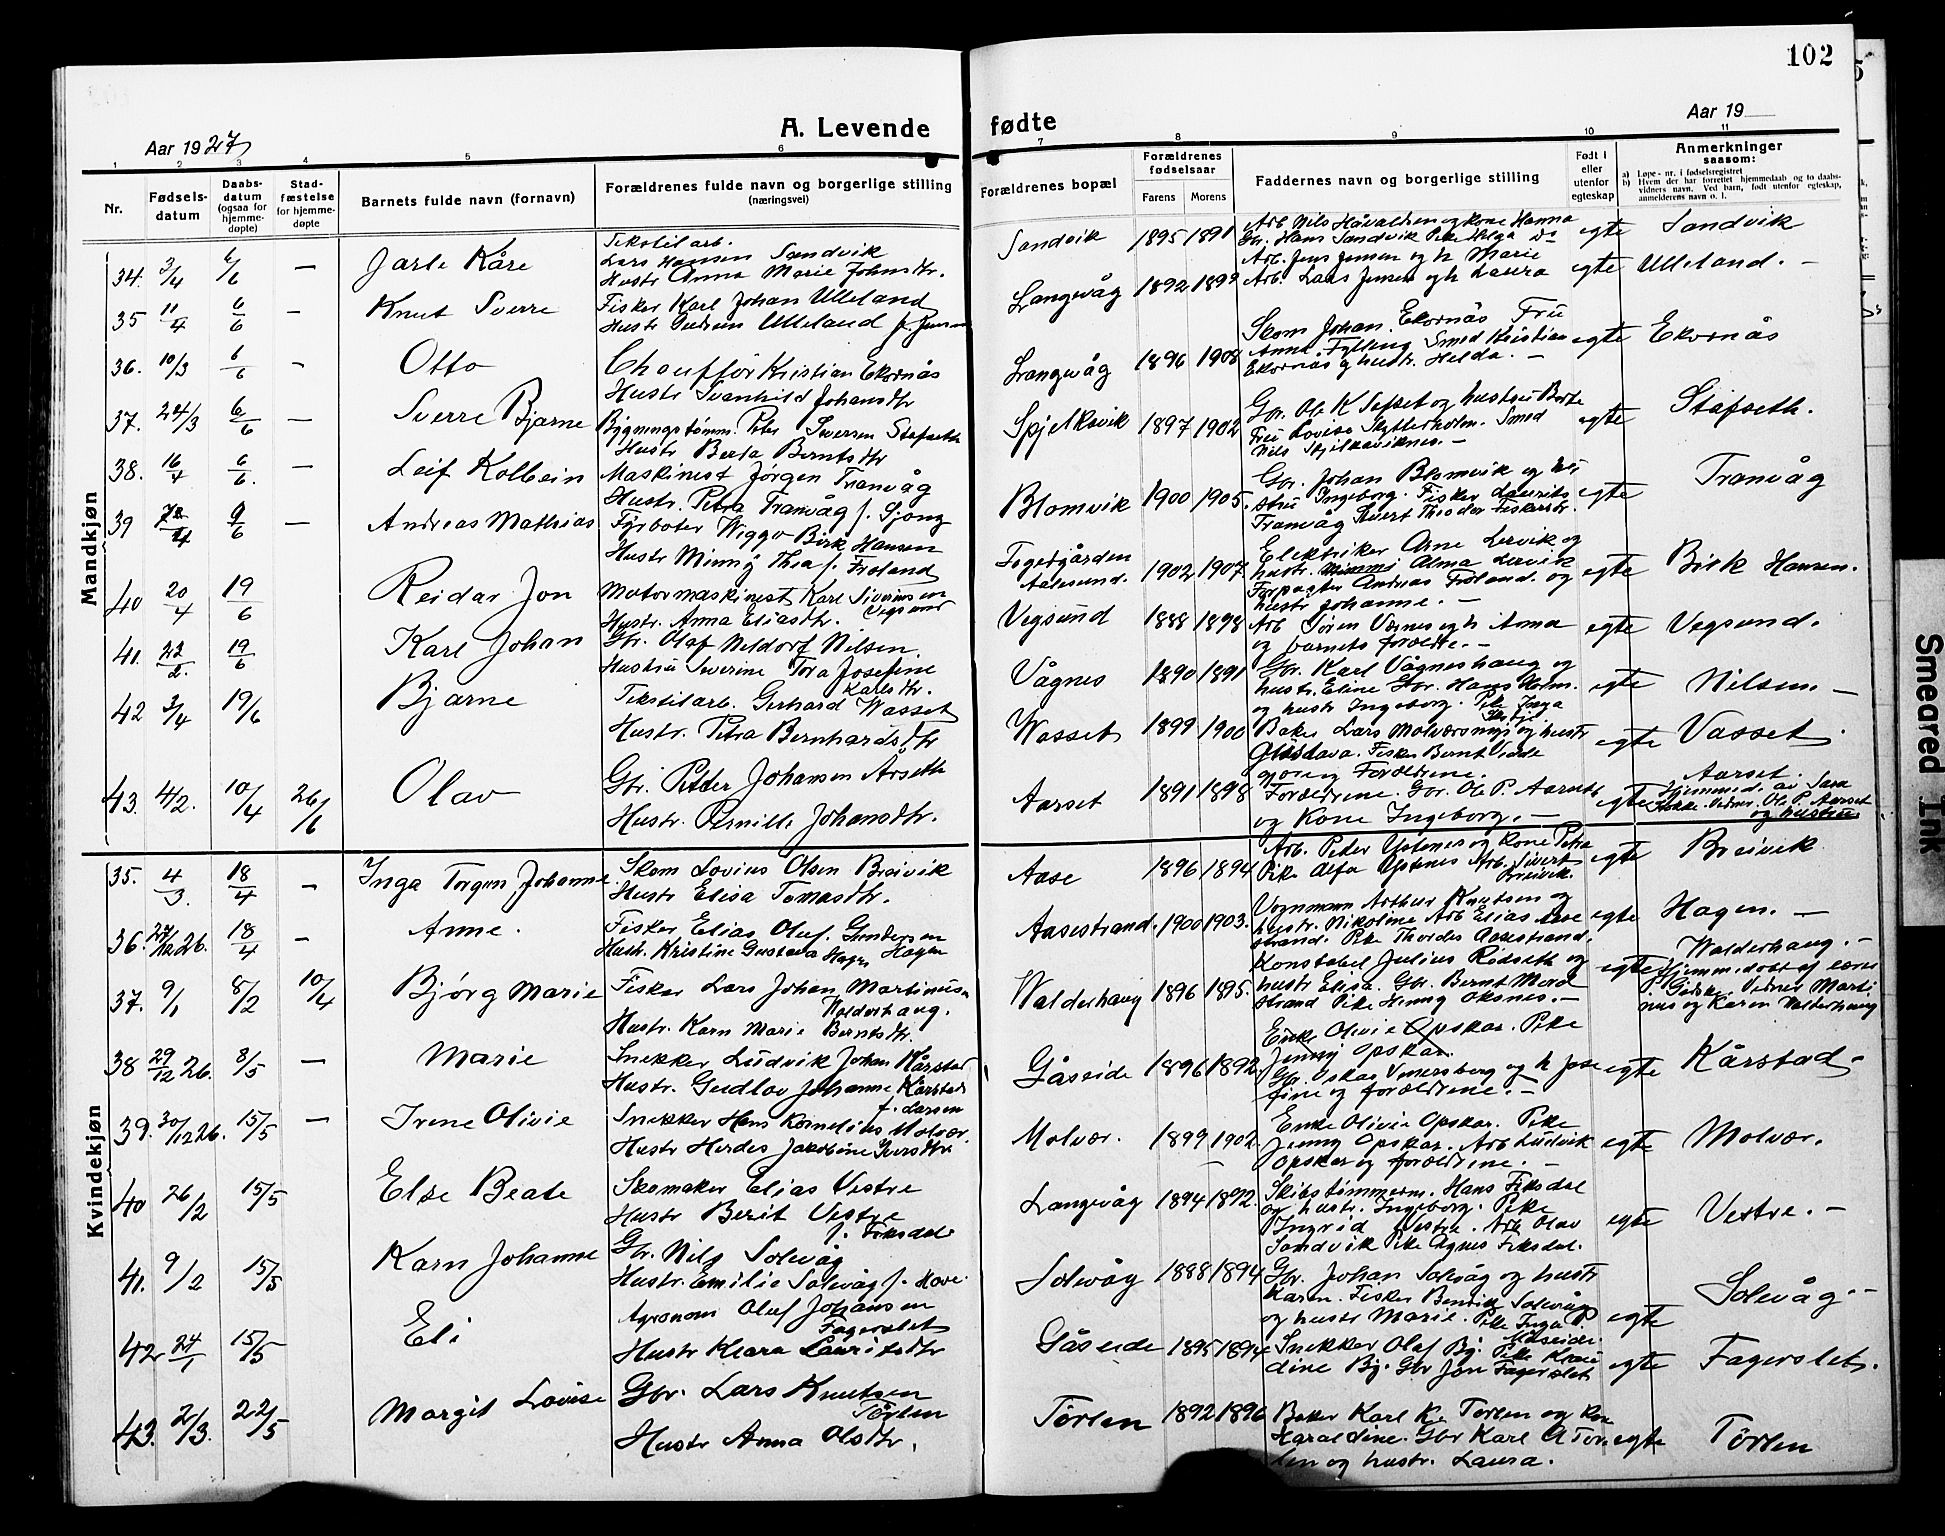 102
Aar 1927
A. Levende
fødte
Aar 19
1 2 3 4 5 6 7 8 9 10 11
Nr.
Fødsels-
datum
Daabs-
datum
(ogsaa for
hjemme-
døpte)
Stad-
fæstelse
for hjemme-
døpte
Barnets fulde navn (fornavn)
Forældrenes fulde navn og borgerlige stilling
(næringsvei)
Forældrenes bopæl
Forældrenes
fødselsaar
Farens Morens
Faddernes navn og borgerlige stilling
Født i
eller
utenfor
egteskap
Anmerkninger
saasom:
a) Løpe-nr. i fødselsregistret
b) Hvem der har forrettet hjemmedaab og to daabs-
vidners navn. Ved barn, født utenfor egteskap,
anmelderens navn o. l.
Mandkjøn
34. 3/4 6/6 — Jarle Kåre
Tekstilarb.
Lars Hansen Sandvik
Hustr Anna Marie Johnsdtr.
Sandvik 1895 1891
Arb Nils Håvaldsen og kone Hanna
Gbr. Hans Sandvik Pike Helga do
egte Sandvik
35 11/4 6/6 — Knut Sverre
Fisker Karl Johan Ulleland
Hustr Gudrun Ulleland f. Jensen
Langevåg 1892 1899
Arb. Jens Jensen og h Marie
Arb. Lars Jensen og h Laura
egte Ulleland. —
36. 10/3 6/6 — Otto
Chauffør Kristian Ekornås
Hustr Svanhild Johansdtr
Langevåg 1896 1908
Skom Johan Ekornås Fru
Anna Fylling Smed Kristian
Ekornås og hustr. Helda. —
egte Ekornås
37. 24/3 6/6 — Sverre Bjarne
Bygningstømm. Peter Iversen Stafseth
Hustr Berta Berntsdtr
Spjelkavik 1897 1902
Gbr. Ole K Sefset og hustru Berte
Fru Lovise Slytterholm. Smed
Nils Spjelkaviknes. —
egte Stafseth.
38. 16/4 6/6. — Leif Kolbein
Maskinist Jørgen Tranvåg
Hustr. Petra Tranvåg f. Sjong
Blomvik 1900 1905.
Gbr. Johan Blomvik og hu
stru Ingeborg. Fisker Laurits
Tranvåg Sivert Theodor Fiskerstr.
egte Tranvåg
39 6/6 — Andreas Mathias
Fyrbøter Wiggo Birk Hansen
Hustr Minny Thea f. Froland
Fogedgården
Aalesund. 1902 1907
Elektriker Arne Lervik og
hustr. Mimmi Alma Lervik
Forpagter Andreas Froland og
hustr Johanne. —
egte Birk Hansen.
40 20/4 19/6 Reidar Jon
Motormaskinest Karl Siverinsen
Vegsund
Hustr. Anna Eliasdtr.
Vegsund 1888 1898
Arb Søren Værnes og h Anna
og barnets forældre. —
egte Vegsund.
41. 22/2. 19/6 Karl Johan
Gbr. Olaf Meldorf Nilsen.
Hustru Severine Tora Josefine
Karlsdtr.
Vågnes 1890 1891
Gbr. Karl Vågneshaug og
hustr. Eline Gbr. Hans Holm.
og hustr Ingeborg. Pike Inga
egte Nilsen. —
42 3/4 19/6 Bjarne
Tekstilarb. Gerhard Wasset
Hustr. Petra Bernhardsdtr
Wasset 1899 1900
Baker Lars Molværsmyr og hustr
Gustava. Fisker Bernt Vedde
og Forældrene.
egte Vasset.
43. 4/2. 10/4 26/6 Olav
Gbr. Petter Johansen Årseth
Hustr. Pernille Johansdtr.
Aarset 1891 1898
Forældrene. Gbr. Ole P. Aarset
og Kone Ingeborg. —
egte Aarset.
Hjemmed. av Sara
Vidner. Ole P. Aarset
og hustru
Kvindekjøn
35. 4/3. 18/4 — Inga Torgun Johanne
Skom Lovius Olsen Breivik
Hustr Elisa Tomasdtr.
Aase 1896 1894
Arb. Peter Upsenes og kone Petra
Pike Alfa Upsenes Arb. Sivert
Breivik.
egte Breivik
36. 26. 18/4 — Anne.
Fisker Elias Oluf. Gundersen
Hagen
Hustr. Kristine Gustava
Aasestrand. 1900 1903.
Vognmann Arthur Knutsen og
hustr. Nikoline Arb Elias Aase
strand. Pike Thordis Aasestrand.
egte Hagen. —
37. 9/1 8/2 10/4 Bjørg Marie
Fisker Lars Johan Martinus
Walderhaug.
Hustr. Karn Marie Berntsdtr.
Walderhaug 1896 1895.
Konstabel Julius Rødseth og
hustr Elisa. Gbr. Bernt Mord
strand Pike Hinny Oksnes. —
egte Walderhaug. —
Hjemmedøbt af lærer
Giske. Vidner Marti
nus og Karen Walderhaug
38 29/12 26. 8/5 — Marie
Snekker Ludvik Johan Kårstad
Hustr. Gudlov Johanne Kårstad
f. Larsen
Gåseide 1896 1892
Enke Olivie Opskar. Pike
Jenny Opskar.
Gbr. Oskar Vinersberg og h Jose
fine og forældrene. —
egte Kårstad —
39. 30/12 26. 15/5 — Irene Olivie
Snekker Hans Kornelius Molvær
Hustr Herdes Jakobine Iversdtr
Molvær. 1899 1902
Enke Olivie Opskar. Pike
Jenny Opskar. Arb Ludvik
Opskar og forældrene. —
egte Molvær.
40 26/2 15/5 Else Beate
Skomaker Elias Vestre
Hustr Berit Vestre
f. Fiksdal
Langevåg 1894 1892.
Skibstømmerm. Hans Fiksdal
og hustr. Ingeborg. Pike
Ingrid Vestre. Arb Olav
Sandvik Pike Agnes Fiksdal.
egte Vestre. —
41. 9/2 15/5 Karn Johanne
Gbr. Nils Solevåg
Hustr. Emilie Solevåg f. Hove
Solevåg 1888 1894
Gbr. Johan Solevåg og hustr
Karen. Fisker Bendik Solevåg
og hustr Marie. Pike Inga P.
Måseide.
egte Solevåg —
42 24/1 15/5 Eli
Agronom Oluf Johansen
Fagerslet
Hustr Klara Lauritsdtr
Gåseide 1895 1894
Snekker Olaf By. Pike Klau
dine By. Gbr Jon Fagerslet
egte Fagerslet.
43. 2/3. 22/5 Margit Lovise
Gbr. Lars Knutsen
Tørlen
Hustr Anna Olsdtr.
Tørlen 1892 1896
Baker Karl K. Tørlen og kone
Haraldine. Gbr Karl A Tør
len og hustr. Laura.
egte Tørlen
Smeared Ink